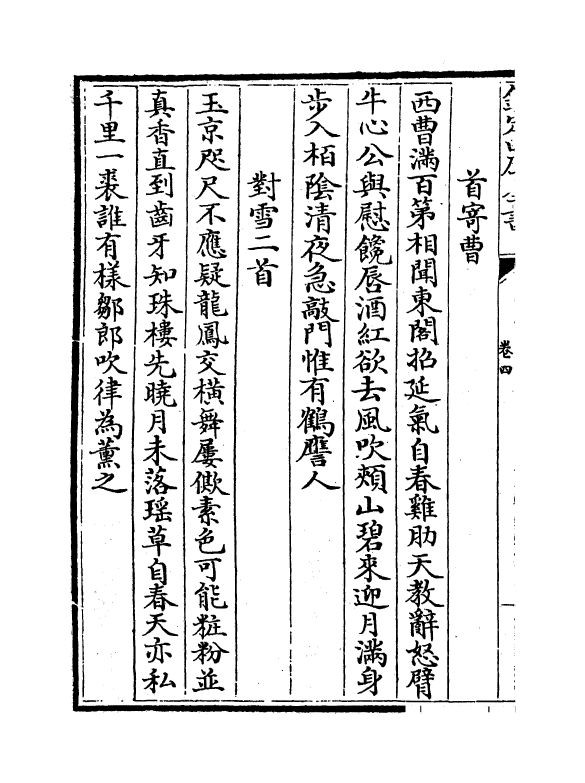 欽定四庫全書
卷四
首寄曹
西曹滿百第相聞東閣招延氣自春雞肋天教辭怒臂
牛心公與慰饞唇酒紅欲去風吹頰山碧來迎月滿身
步入栢陰清夜急敲門惟有鶴譍人
對雪二首
玉京咫尺不應疑龍鳳交橫舞屢僛素色可能粧粉並
真香直到齒牙知珠樓先曉月未落瑶草自春天亦私
千里一裘誰有樣鄒郎吹律為薰之